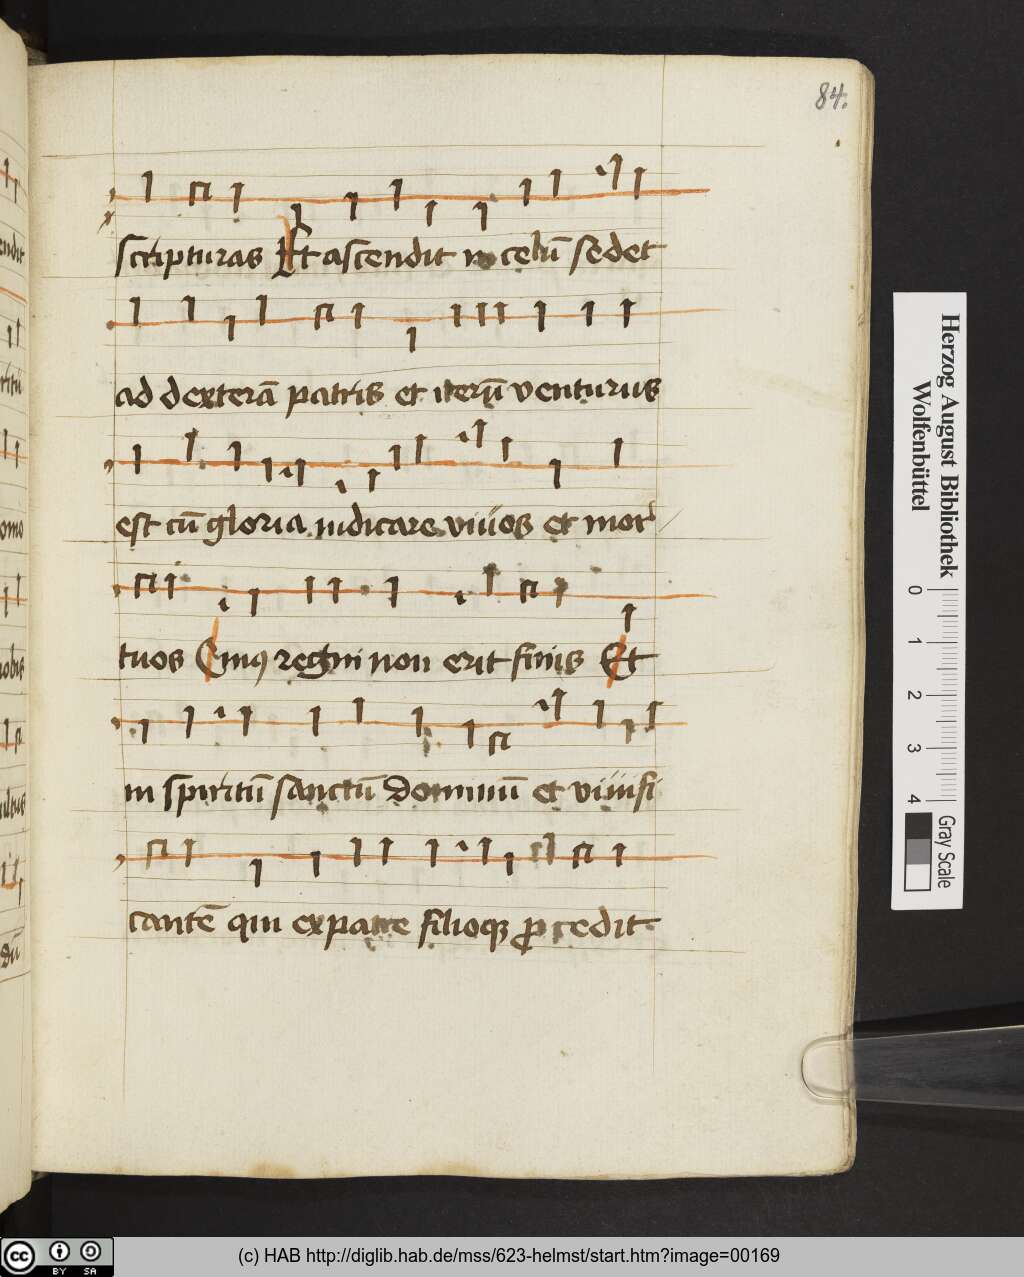 84.
scripturas Et ascendit in celū sedet
ad dexterā patris et iterū venturus
est cū gloria iudicare viuos et mor
tuos Cuiꝯ regni non erit finis Et
in spiritū sanctū Dominū et viuifi
cantē qui ex patre filioqꝫ ꝓcedit
Herzog August Bibliothek
Wolfenbüttel
0 1 2 3 4
Gray Scale
cc BY SA
(c) HAB http://diglib.hab.de/mss/623-helmst/start.htm?image=00169